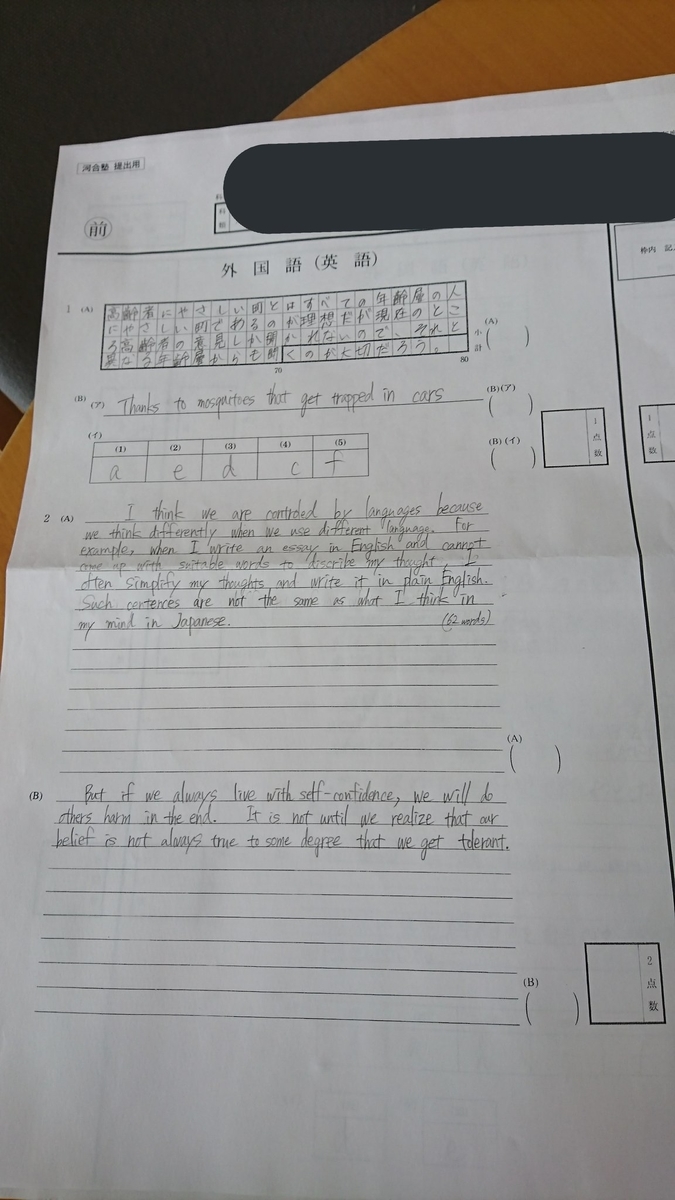 河合塾 提出用
前
外国語(英語)
1 (A)
高齢者にやさしい町とはすべての年齢層の人
にやさしい町であるのが理想だが現在のとこ
ろ高齢者の意見しか聞かれないので、それと
異なる年齢層からも聞くのが大切だろう。
70
80
小計
(A)
( )
(B) (ア) Thanks to mosquitoes that get trapped in cars
(B)(ア)
( )
(イ)
(1) (2) (3) (4) (5)
a e d c f
(B)(イ)
( )
1点数
1点数
枠内
2 (A) I think we are controled by languages because
we think differently when we use different language. For
example, when I write an essay in English and cannot
come up with suitable words to discribe my thought, I
often simplify my thoughts and write it in plain English.
Such centences are not the same as what I think in
my mind in Japanese. (62 words)
(A)
( )
(B) But if we always live with self-confidence, we will do
others harm in the end. It is not until we realize that our
belief is not always true to some degree that we get tolerant.
(B)
( )
2点数